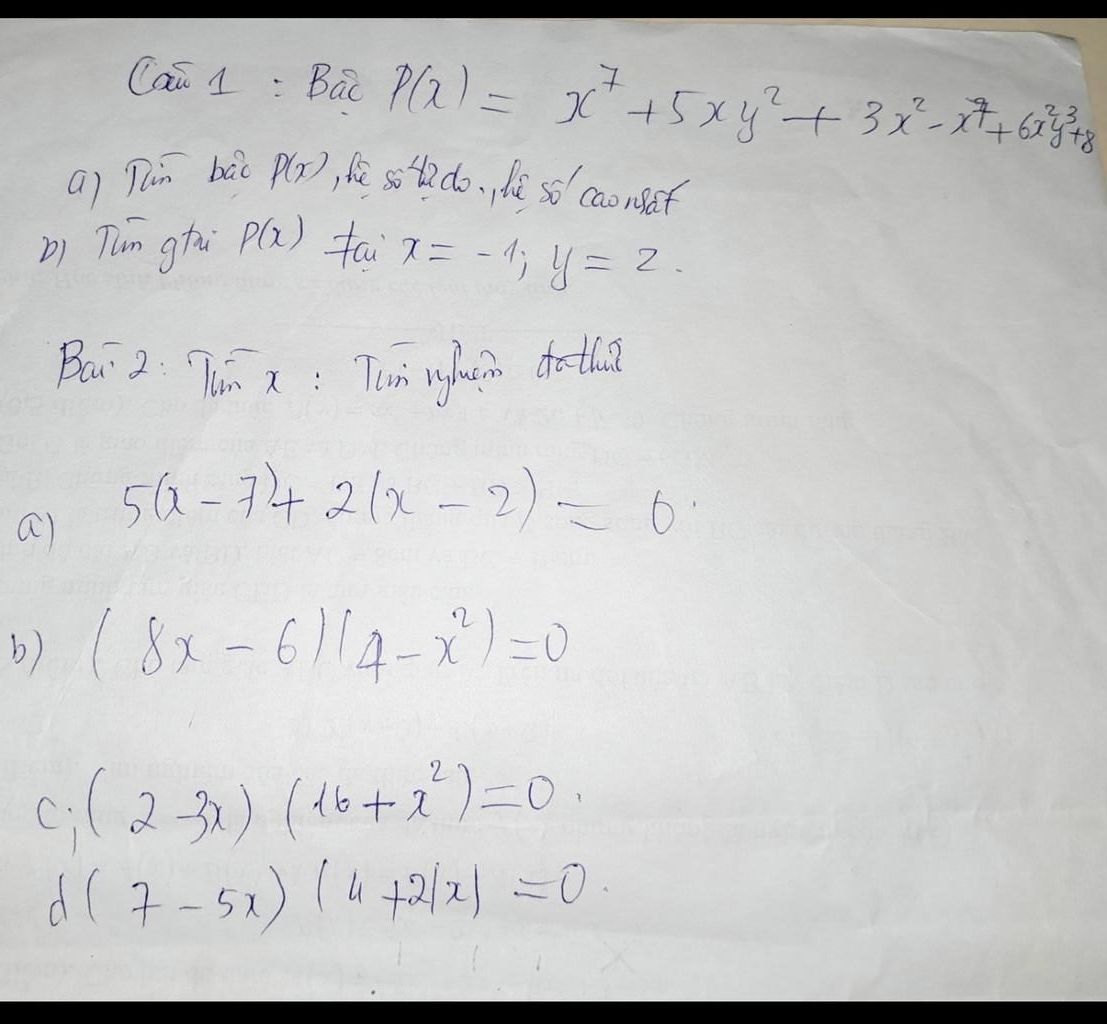 Câu 1 : Bậc P(x) = x⁷ + 5xy² + 3x² - x⁷ + 6x²y³ + 8
a) Tìm bậc P(x), hệ số tự do., hệ số cao nhất
b) Tìm gtrị P(x) tại x = -1; y = 2.
Bài 2 : Tìm x : Tìm nghiệm đa thức
a) 5(x - 7) + 2(x - 2) = 0.
b) (8x - 6)(4 - x²) = 0
c; (2 - 3x) (16 + x²) = 0.
d ( 7 - 5x) (4 + 2|x| = 0.